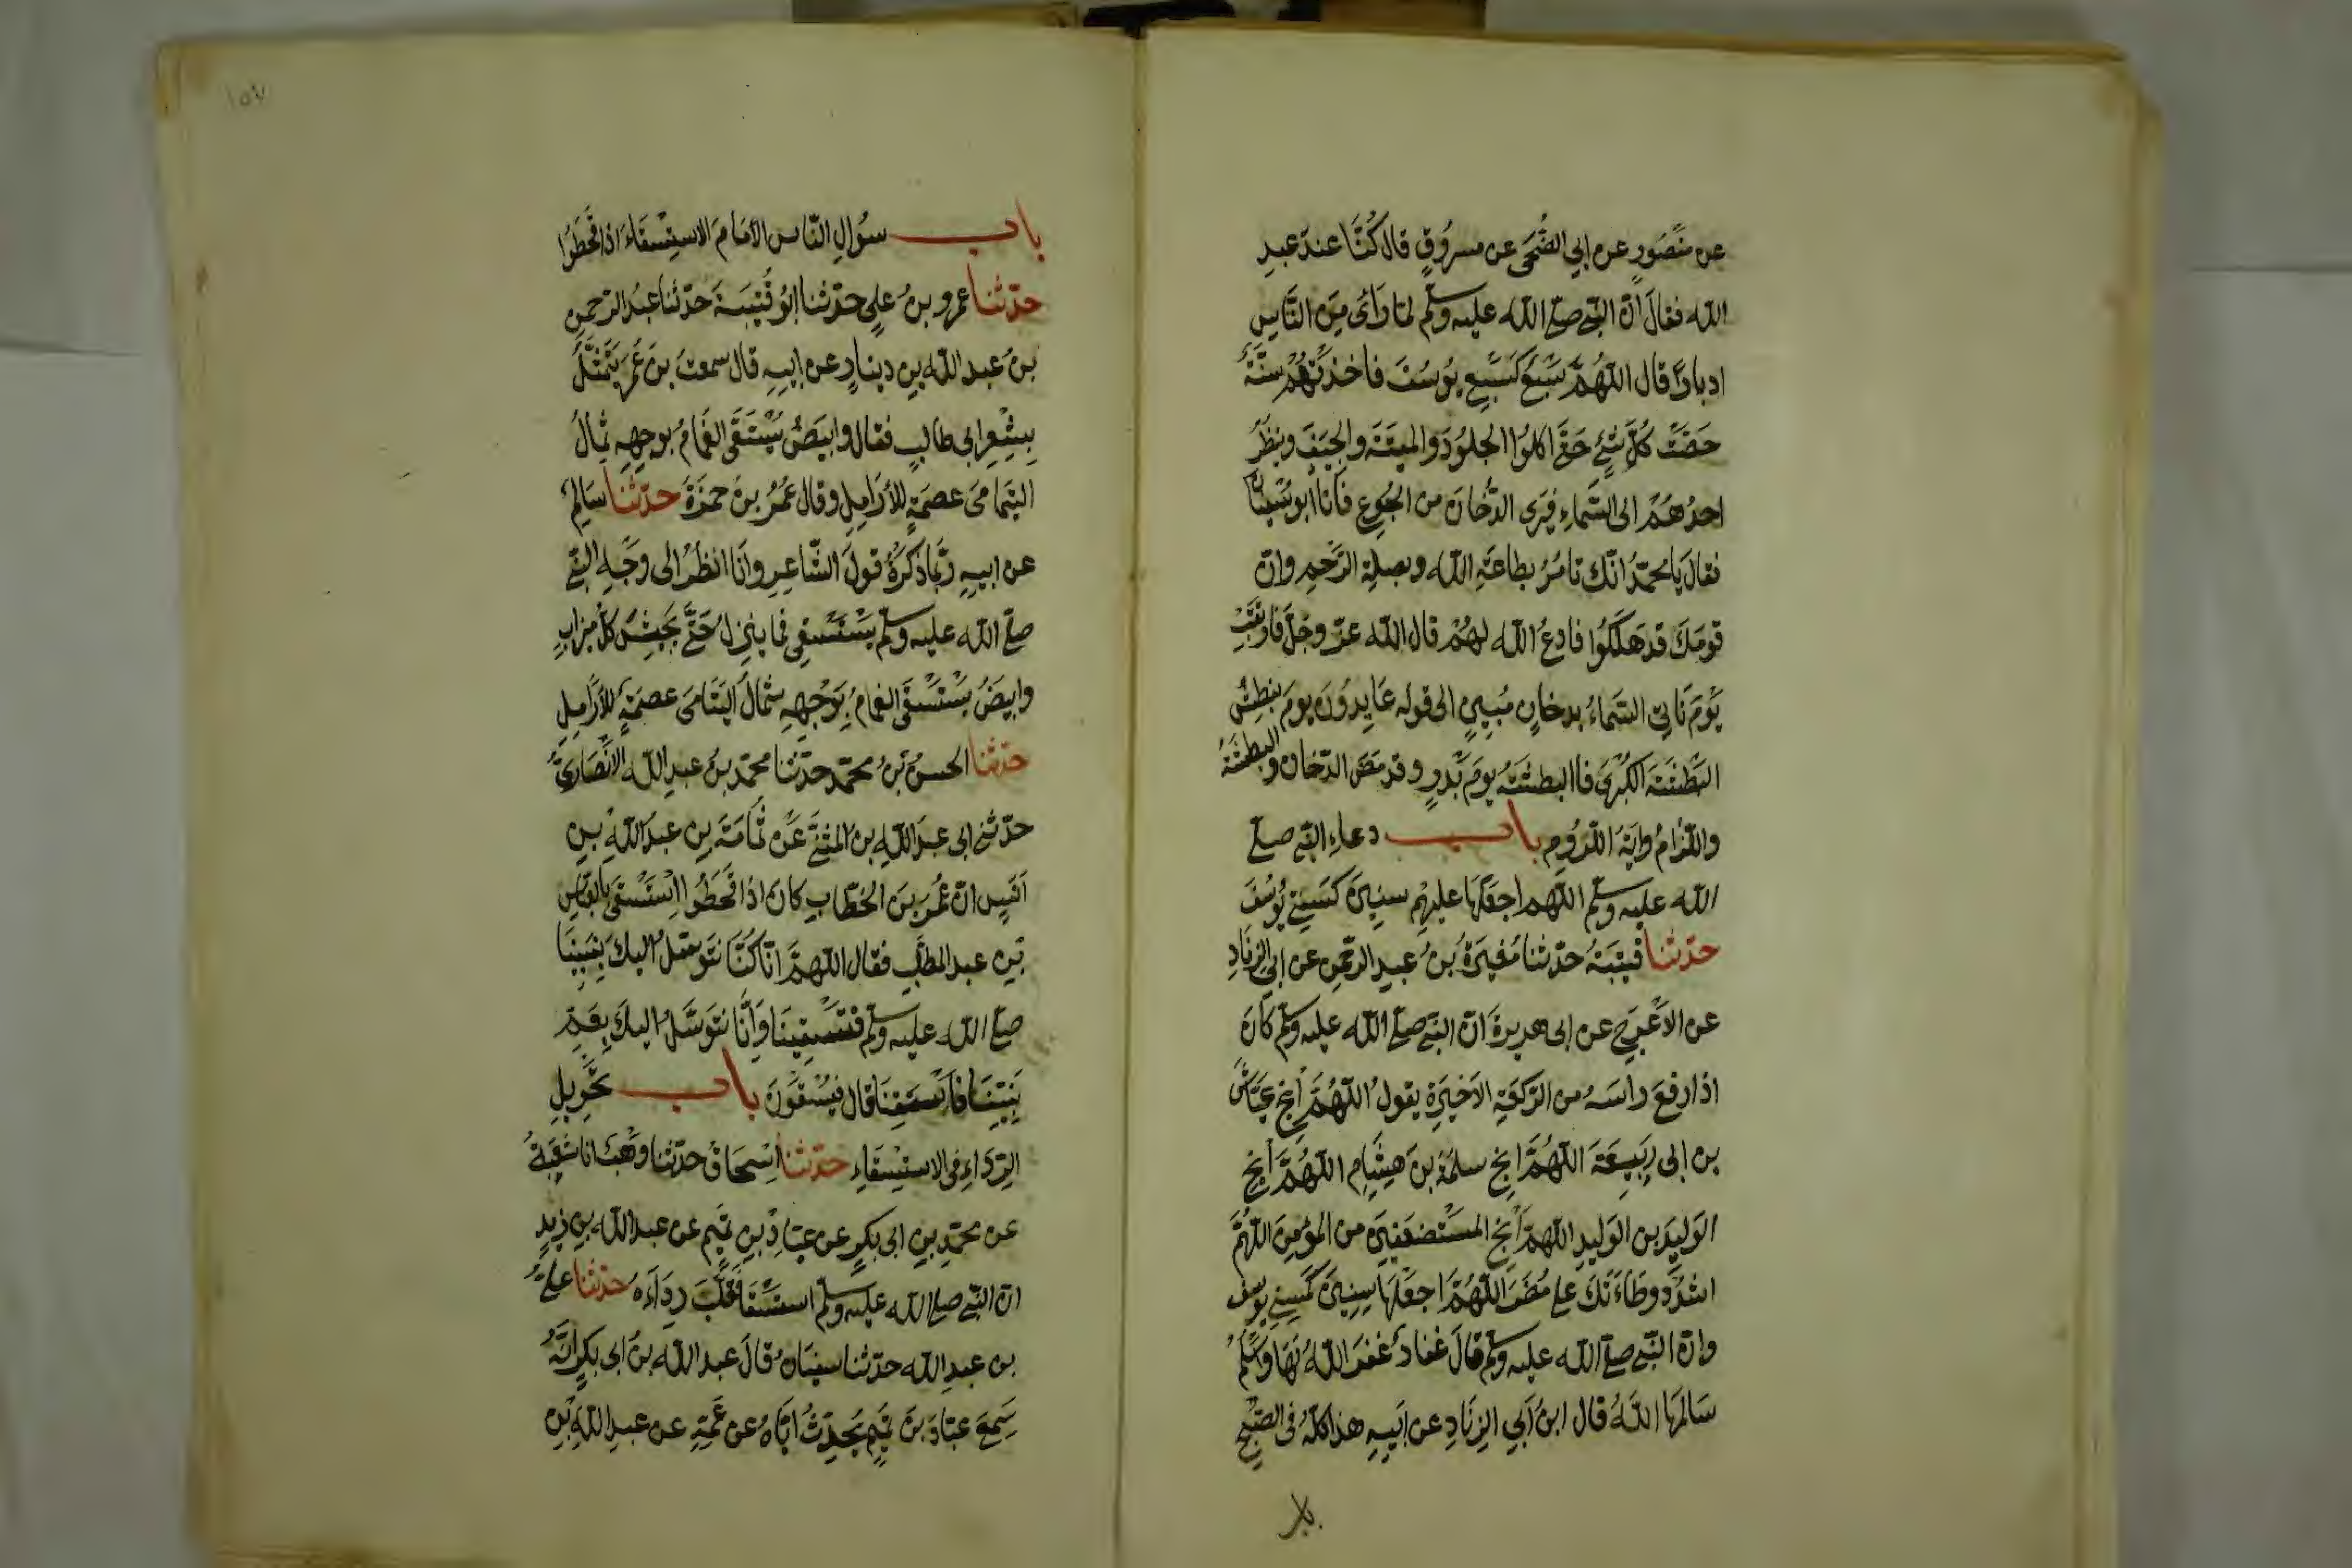 عن منصور عن ابي الضحى عن مسروق قال كنا عند عبد
الله فقال ان النبي صلى الله عليه وسلم لما رأى من الناس
ادبارا قال اللهم سبع كسبع يوسف فاخذتهم سنة
حصت كل شئ حتى اكلوا الجلود والميتة والجيف وينظر
احدهم الى السماء فيرى الدخان من الجوع فاتاه ابو سفيان
فقال يا محمد انك تامر بطاعة الله وبصلة الرحم وان
قومك قد هلكوا فادع الله لهم قال الله عز وجل فارتقب
يوم تاتي السماء بدخان مبين الى قوله عايدون يوم نبطش
البطشة الكبرى فالبطشة يوم بدر وقد مضت الدخان والبطشة
واللزام واية الروم باب دعاء النبي صلى
الله عليه وسلم اللهم اجعلها عليهم سنين كسني يوسف
حدثنا قتيبة حدثنا مغيرة بن عبد الرحمن عن ابي الزناد
عن الاعرج عن ابي هريرة ان النبي صلى الله عليه وسلم كان
اذا رفع راسه من الركعة الاخيرة يقول اللهم انج عياش
بن ابي ربيعة اللهم انج سلمة بن هشام اللهم انج
الوليد بن الوليد اللهم انج المستضعفين من المؤمنين اللهم
اشدد وطاءتك على مضر اللهم اجعلها سنين كسني يوسف
وان النبي صلى الله عليه وسلم قال غفار غفر الله لها واسلم
سالمها الله قال ابن ابي الزناد عن ابيه هذا كله في الصبح
باب
١٥٧
باب سؤال الناس الامام الاستسقاء اذا قحطوا
حدثنا عمرو بن علي حدثنا ابو قتيبة حدثنا عبد الرحمن
بن عبد الله بن دينار عن ابيه قال سمعت بن عمر يتمثل
بشعر ابي طالب فقال وابيض يستقى الغمام بوجهه ثمال
اليتامى عصمة للارامل وقال عمر بن حمزة حدثنا سالم
عن ابيه ربما ذكرت قول الشاعر وانا انظر الى وجه النبي
صلى الله عليه وسلم يستسقي فما ينزل حتى يجيش كل ميزاب
وابيض يستسقى الغمام بوجهه ثمال اليتامى عصمة للارامل
حدثنا الحسن بن محمد حدثنا محمد بن عبد الله الانصاري
حدثني ابي عبد الله بن المثنى عن ثمامة بن عبد الله بن
انس ان عمر بن الخطاب كان اذا قحطوا استسقى بالعباس
بن عبد المطلب فقال اللهم انا كنا نتوسل اليك بنبينا
صلى الله عليه وسلم فتسقينا وانا نتوسل اليك بعم
نبينا فاسقنا قال فيسقون باب تحويل
الرداء في الاستسقاء حدثنا اسحاق حدثنا وهب انا شعبة
عن محمد بن ابي بكر عن عباد بن تميم عن عبد الله بن زيد
ان النبي صلى الله عليه وسلم استسقا فقلب رداءه حدثنا علي
بن عبد الله حدثنا سفيان قال عبد الله بن ابي بكر انه
سمع عباد بن تميم يحدث اباه عن عمه عن عبد الله بن